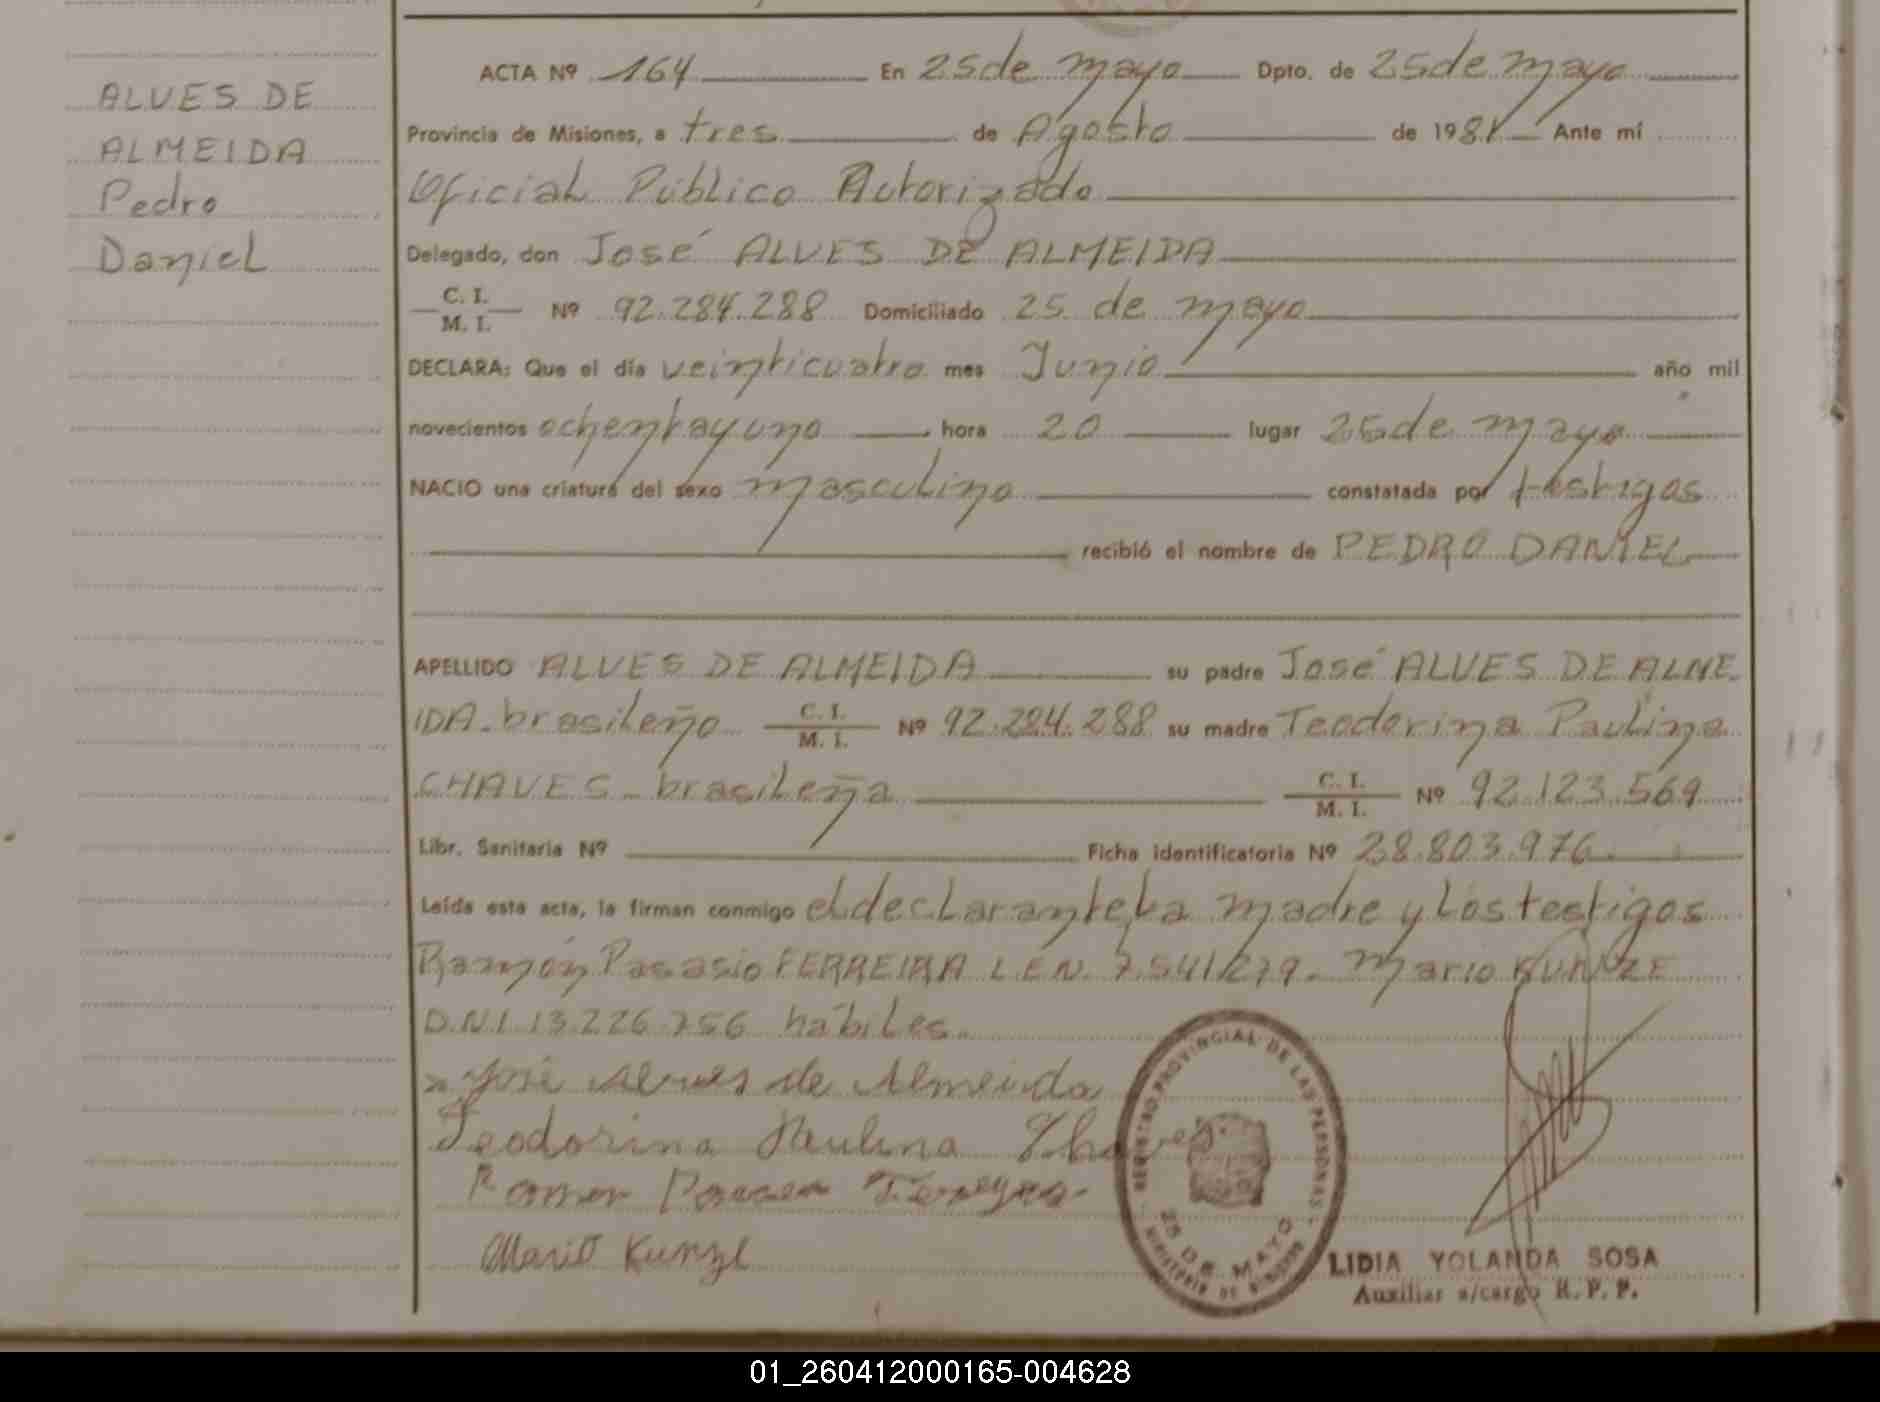 ALVES DE
ALMEIDA
Pedro
Daniel
ACTA Nº 164 En 25 de mayo Dpto. de 25 de mayo
Provincia de Misiones, a tres de Agosto de 1981 Ante mí
Oficial Público Autorizado
Delegado, don José ALVES DE ALMEIDA
C. I.
M. I. Nº 92.284.288 Domiciliado 25 de mayo
DECLARA: Que el día veinticuatro mes Junio año mil
novecientos ochentayuno hora 20 lugar 25 de mayo
NACIO una criatura del sexo masculino constatada por testigos
recibió el nombre de PEDRO DANIEL
APELLIDO ALVES DE ALMEIDA su padre José ALVES DE ALME
IDA. brasileño C. I. M. I. Nº 92.284.288 su madre Teodorina Paulina
CHAVES - brasileña C. I. M. I. Nº 92.123.569
Libr. Sanitaria Nº Ficha identificatoria Nº 28.803.976
Leída esta acta, la firman conmigo el declarante, la madre y los testigos
Ramón Pasasio FERREIRA L.E.N. 7.541.279. Mario KUNZE
D.N.I. 13.226.756 hábiles.
José Alves de Almeida
Teodorina Paulina Chaves
Ramon
Mario Kunze
REGISTRO PROVINCIAL DE LAS PERSONAS
25 DE MAYO
MINISTERIO DE GOBIERNO
LIDIA YOLANDA SOSA
Auxiliar a/cargo R. P. P.
01_260412000165-004628